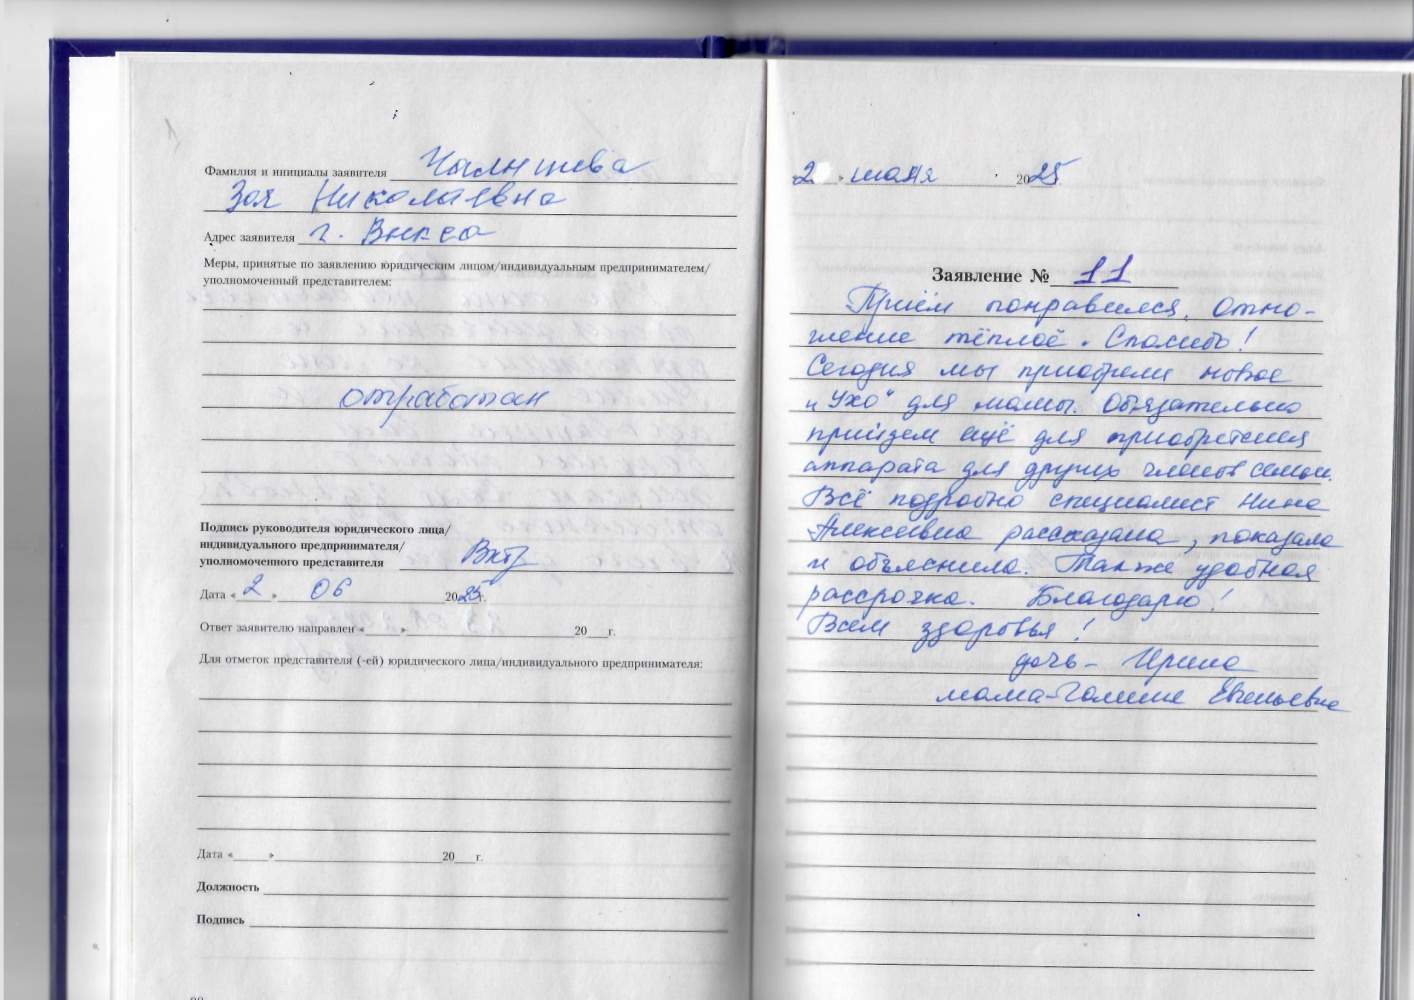 Фамилия и инициалы заявителя
Зоя Николаевна
Адрес заявителя г. Выкса
Меры, принятые по заявлению юридическим лицом/индивидуальным предпринимателем/
уполномоченный представителем:
отработан
Подпись руководителя юридического лица/
индивидуального предпринимателя/
уполномоченного представителя
Дата «2» 06 2025г.
Ответ заявителю направлен «___» 20___г.
Для отметок представителя (-ей) юридического лица/индивидуального предпринимателя:
Дата «___» 20___г.
Должность
Подпись
2 » июня 2025
Заявление № 11
Приём понравился. Отно-
шение тёплое. Спасибо!
Сегодня мы приобрели новое
"Ухо" для мамы. Обязательно
прийдем ещё для приобретения
аппарата для других членов семьи.
Всё подробно специалист Нина
Алексеевна рассказала, показала
и объяснила. Также удобная
рассрочка. Благодарю!
Всем здоровья!
дочь - Ирина
мама - Галина Евгеньевна